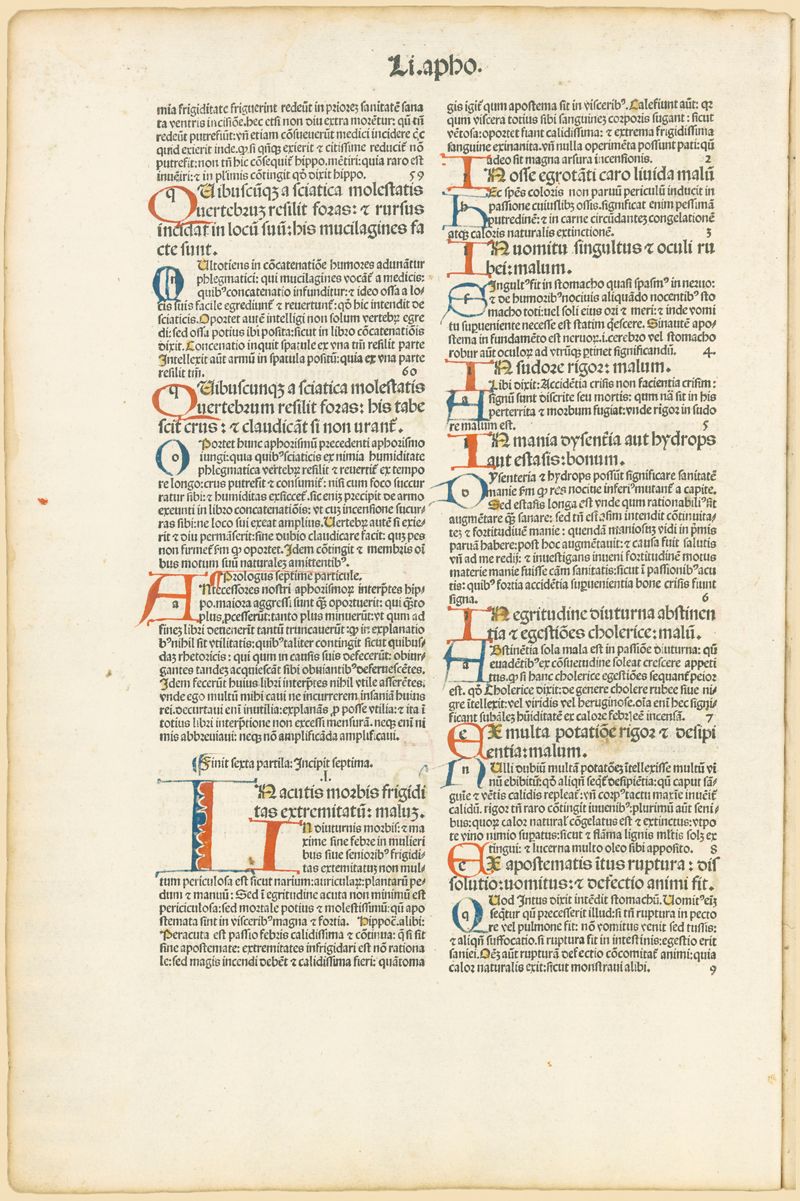 Li.apho.
mia frigiditate friguerint redeũt in priorez sanitatẽ sana
ta ventris incisiõe.hec etsi non diu extra morẽtur: qũ tñ
redeũt putrefiũt:vñ etiam cõsueuerũt medici incidere
quid exierit inde.ꝙ si qñqꝫ exierit ⁊ citissime reducit nõ
putrefit:non tñ hic cõsequit hippo.mẽtiri:quia raro est
inuẽiri:⁊ in plimis cõtingit qđ dixit hippo. 59
q Uibuscũqꝫ a sciatica molestatis
uertebruz resilit foras: ⁊ rursus
incidat in locũ suũ:his mucilagines fa
cte sunt.
m Ultotiens in cõcatenatiõe humores adunãtur
phlegmatici: qui mucilagines vocãt a medicis:
quibꝰ concatenatio infunditur:⁊ ideo ossa a lo-
cis suis facile egrediunt ⁊ reuertunt:qđ hic intendit de
sciaticis.Oportet autẽ intelligi non solum vertebꝝ egre
di:sed ossa potius ibi posita:sicut in libro cõcatenatiõis
dixit.Concenatio inquit spatule ex vna tñ resilit parte
Intellexit aũt armũ in spatula positũ:quia ex vna parte
resilit tñ. 60
q Uibuscunqꝫ a sciatica molestatis
uertebrum resilit foras: his tabe
scit crus: ⁊ claudicãt si non urant.
o Portet hunc aphorismũ precedenti aphorismo
iungi:quia quibꝰ sciaticis ex nimia humiditate
phlegmatica vertebꝝ resilit ⁊ reuertit ex tempo
re longo:crus putrefit ⁊ consumit: nisi cum foco succur
ratur sibi:⁊ humiditas exsiccet.sic eniz precipit de armo
exeunti in libro concatenatiõis: vt cuz incensione sucur-
ras sibi:ne loco sui exeat amplius.Uertebꝝ autẽ si exie-
rit ⁊ diu permãserit:sine dubio claudicare facit: quiz pes
non firmet ſm ꝙ oportet.Idem cõtingit ⁊ membris oĩ
bus motum suũ naturalez amittentibꝰ.
¶Prologus septime particule.
a Ntecessores nostri aphorismoꝝ interp̃tes hip-
po.maiora aggressi sunt qꝫ oportuerit: qui qñto
plus processerũt:tanto plus minuerũt:vt qum ad
finez libri deuenerit tantũ truncauerũt:ꝙ in explanatio
bꝰ nihil sit vtilitatis: quibꝰ taliter contingit sicut quibus-
daz rhetoricis : qui qum in causis suis defecerũt: obiur-
gantes tandez acquiescãt sibi obuiantibꝰ deferuescẽtes.
Idem fecerũt huius libri interp̃tes nihil vtile asserẽtes.
vnde ego multũ mihi caui ne incurrerem insaniã huius
rei.decurtaui eni inutilia:explanãs ꝓ posse vtilia:⁊ ita ĩ
totius libri interp̃tione non excessi mensurã. neqꝫ eni ni
mis abbreuiaui: neqꝫ nõ amplificãda amplificaui.
¶Finit sexta partila: Incipit septima.
.I.
I N acutis morbis frigidi
tas extremitatũ: maluz.
I N diuturnis morbis: ⁊ ma
xime sine febre in mulieri
bus siue senioribꝰ frigidi-
tas extemitatuz non mul-
tum periculosa est sicut narium:auricularꝝ:plantarũ pe-
dum ⁊ manuũ: Sed ĩ egritudine acuta non minimũ est
periciculosa:sed mortale potius ⁊ molestissimũ:qũ apo
stemata sint in visceribꝰ magna ⁊ fortia. Hippoẽ.alibi:
Peracuta est passio febris calidissima ⁊ cõtinua: q̃ si sit
sine apostemate: extremitates infrigidari est nõ rationa
le:sed magis incendi debẽt ⁊ calidissima fieri: quãtoma
gis igit̃ qum apostema sit in visceribꝰ. Calefiunt aũt: qꝛ
qum viscera totius sibi sanguinez corporis sugant : sicut
vẽtosa:oportet fiant calidissima: ⁊ extrema frigidissima
sanguine exinanita.vñ nulla operimẽta possunt pati:qũ
ideo sit magna arsura incensionis. 2
I N osse egrotãti caro liuida malũ
h Ec spẽs coloris non paruũ periculũ inducit in
passione cuiuslibꝫ ossis.significat enim pessimã
putredinẽ:⁊ in carne circũdantez congelationẽ
atqꝫ caloris naturalis extinctionẽ. 3
I N uomitu singultus ⁊ oculi ru
bei:malum.
s Ingultꝰ fit in stomacho quasi spasmꝰ in neruo:
⁊ de humoribꝰ nociuis aliquãdo nocentibꝰ sto
macho toti:uel soli eius ori ⁊ meri:⁊ inde vomi
tu supueniente necesse est statim q̃escere. Sinautẽ apo-
stema in fundamẽto est neruoꝝ.i.cerebro vel stomacho
robur aũt oculoꝝ ad vtrũqꝫ ꝑtinet significandũ. 4.
I N sudore rigor: malum.
a Libi dixit:Accidẽtia crisis non facientia crisim:
signũ sunt discrite seu mortis: qum nã sit in his
perterrita ⁊ morbum fugiat:vnde rigor in sudo
re malum est. 5
I N mania dysentẽia aut hydrops
aut estasis:bonum.
d Ysenteria ⁊ hydrops possũt significare sanitatẽ
manie ſm ꝙ res nocitie inferiꝰ mutant̃ a capite.
Sed estasis longa est vnde qum rationabiliꝰ sit
augmẽtare qꝫ sanare: sed tñ estasim intendit cõtinuita-
tez ⁊ fortitudiuẽ manie : quendã maniosuz vidi in p̃mis
paruã habere:post hoc augmẽtauit:⁊ causa fuit salutis
vñ ad me redij: ⁊ inuestigans inueni fortitudinẽ motus
materie manie fuisse cãm sanitatis:sicut ĩ passionibꝰ acu
tis: quibꝰ fortia accidẽtia supuenientia bone crisis fiunt
signa. 6
I N egritudine diuturna abstinen
tia ⁊ egestiões cholerice: malũ.
a Bstinẽtia sola mala est in passiõe diuturna: qũ
euadẽtibꝰ ex cõsuetudine soleat crescere appeti
tus.ꝙ si hanc cholerice egestiões sequant̃ peior
est. qđ Cholerice dixit:de genere cholere rubee siue ni-
gre ĩtellexit:vel viridis vel heruginose.oĩa eni hec signi-
ficant subalez hũiditatẽ ex calore febrẽẽ incensã. 7
E X multa potatiõe rigor ⁊ desipi
entia:malum.
n Ulli dubiũ multã potatõez ĩtellexisse multũ vi
nũ ebibitũ:qđ aliqñ seq̃t̃ desipiẽtia:qũ caput sã-
guĩe ⁊ vẽtis calidis repleat̃: vñ corpꝰ tactu maxie inueit̃
calidũ. rigor tñ raro cõtingit iuuenibꝰ:plurimũ aũt seni-
bus:quoꝝ calor natural̃ cõgelatus est ⁊ extinctus:vtpo
te vino nimio supatus:sicut ⁊ flãma lignis mltis solꝫ ex
tingui: ⁊ lucerna multo oleo sibi apposito. 8
E X apostematis ĩtus ruptura : dis
solutio:uomitus:⁊ defectio animi fit.
q Uod Intus dixit intẽdit stomachũ. Uomitꝰ eiz
seq̃tur qũ precesserit illud:si tñ ruptura in pecto
re vel pulmone fit: nõ vomitus venit sed tussis:
⁊ aliqñ suffocatio.si ruptura fit in intestinis:egestio erit
saniei.Oẽs aũt rupturã defectio cõcomitat̃ animi:quia
calor naturalis exit:sicut monstraui alibi. 9